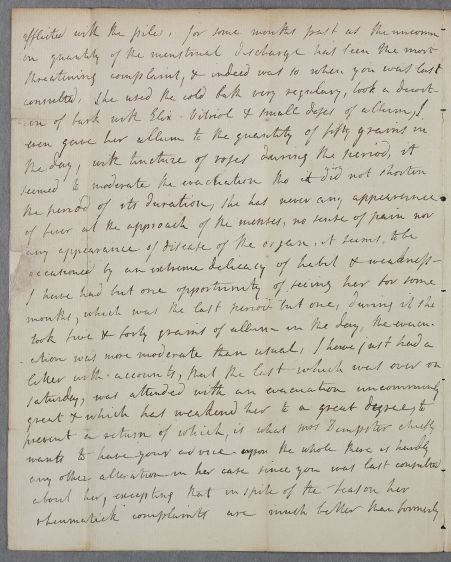 afflicted with the piles. for some months past as the uncomm-
on quantity of the menstrual discharge has been the most
threatening complaint, & indeed was so when you was last
consulted. She used the cold bath very regulary, took a decoct-
ion of bark with Elix. Vitriol & small doses of allum, I
even gave her allum to the quantity of fifty grains in
the day, with tincture of roses during the period, it
seemed to moderate the evacuation tho it did not shorten
the period of its duration, she has never any appearence
of fever at the approach of the menses, no sense of pain nor
any appearance of disease of the organ. it seems to be
occationed by an extreme delicacy of habit & weakness
I have had but one opportunity of seeing her for some
months, which was the last period but one, during it she
took five & forty grains of allum in the day, the evacu-
ation was more moderate than usual, I have just had a
letter with accounts, that the last which was over on
saturday, was attended with an evacuation uncommonly
great & which has weakend her to a great degree, to
prevent a return of which, is what Mrs Dempster chiefly
wants to have your advice upon the whole there is hardly
any other alteration in her case since you was last consulted
about her, excepting that in spite of the season her
rheumatick complaints are much better than formerly